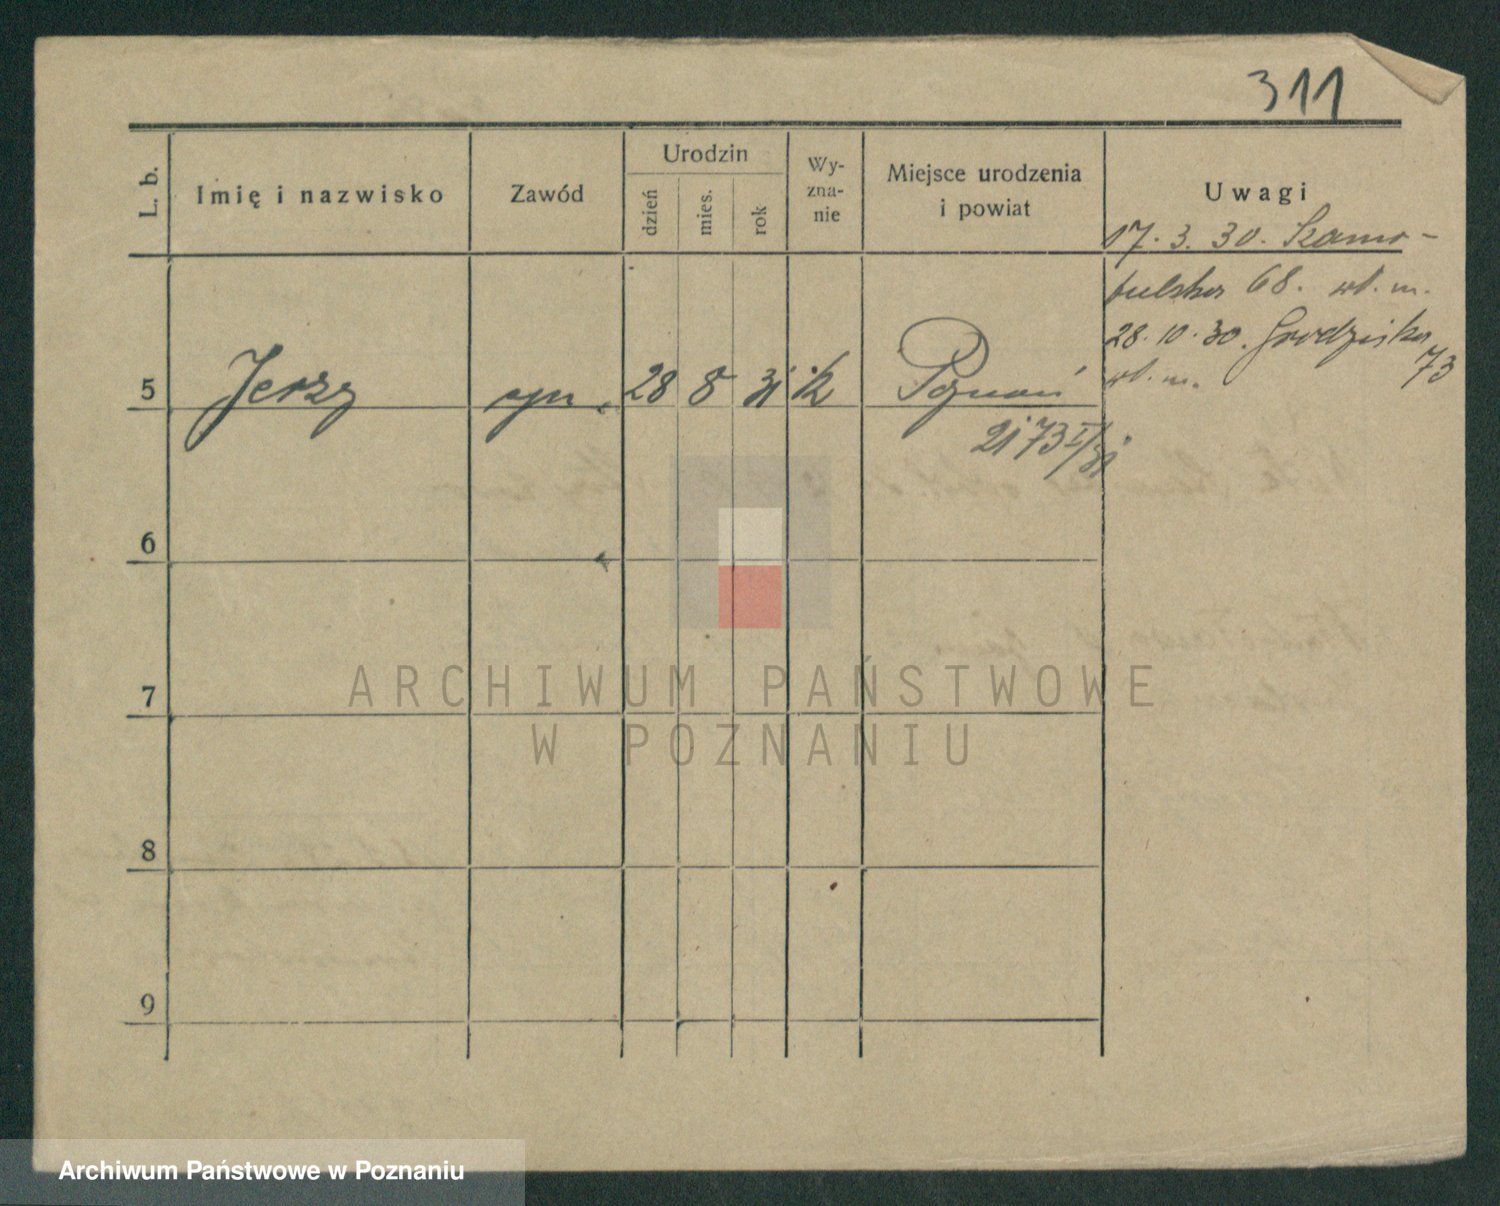 311
L. b.
Imię i nazwisko
Zawód
Urodzin
dzień
mies.
rok
Wy-
zna-
nie
Miejsce urodzenia
i powiat
Uwagi
17. 3. 30. Szamo-
tulska 68. wł. m.
28. 10. 30. Grodziska
73
wł. m.
5 Jerzy syn 28 8 31 k Poznań
2173 I/31
6
7
8
9
ARCHIWUM PAŃSTWOWE
W POZNANIU
Archiwum Państwowe w Poznaniu